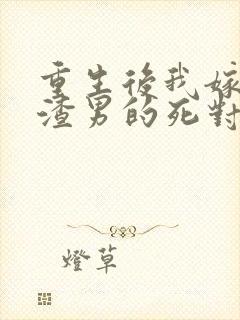 重生後我嫁
渣男的死對
燈草